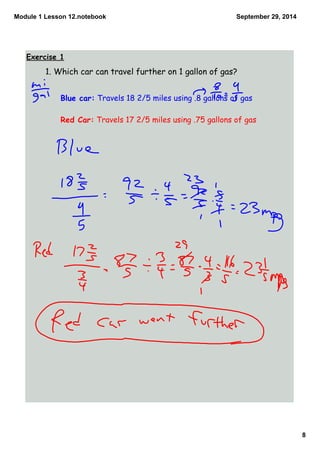 Module 1 Lesson 12.notebook
September 29, 2014
Exercise 1
1. Which car can travel further on 1 gallon of gas?
mi/gal
8/10 = 4/5
Blue car: Travels 18 2/5 miles using .8 gallons of gas
Red Car: Travels 17 2/5 miles using .75 gallons of gas
Blue
18 2/5 / 4/5 = 92/5 ÷ 4/5 = 92/5 · 5/4 = 23 mpg
23 1
1 1
Red 17 2/5 / 3/4 = 87/5 ÷ 3/4 = 87/5 · 4/3 = 116/5 = 23 1/5 mpg
29
1
Red car went further
8